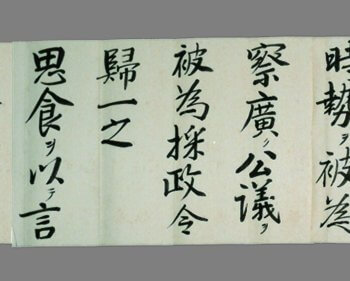 時勢ヲ被為
察廣ク公議ヲ
被為採政令
歸一之
思食ヲ以テ言